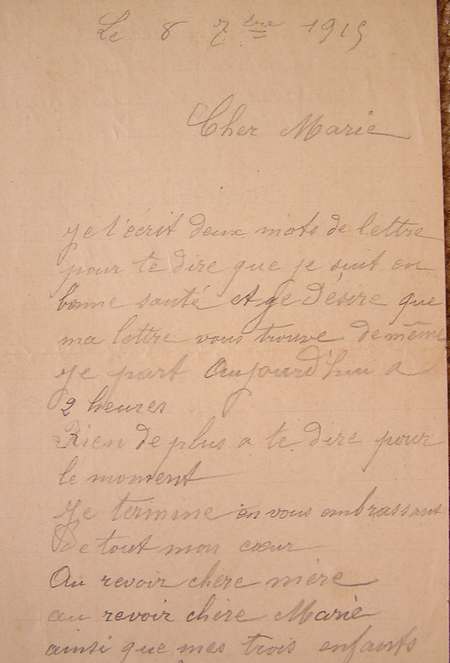 Le 8 7bre 1915
Cher Marie
je t'écrit deux mots de lettre
pour te dire que je suit en
bonne santé et je désire que
ma lettre vous trouve de même
je part Aujourd'hui a
2 heures
Rien de plus a te dire pour
le moment
je termine en vous embrassant
de tout mon cœur
Au revoir chere mère
au revoir chère Marie
ainsi que mes trois enfants